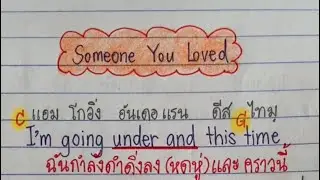 Someone You Loved
C แอม โกอิ้ง อันเดอแรน ดีส G ไทม
I'm going under and this time
ฉันกำลังดำดิ่งลง (หดหู่) และคราวนี้